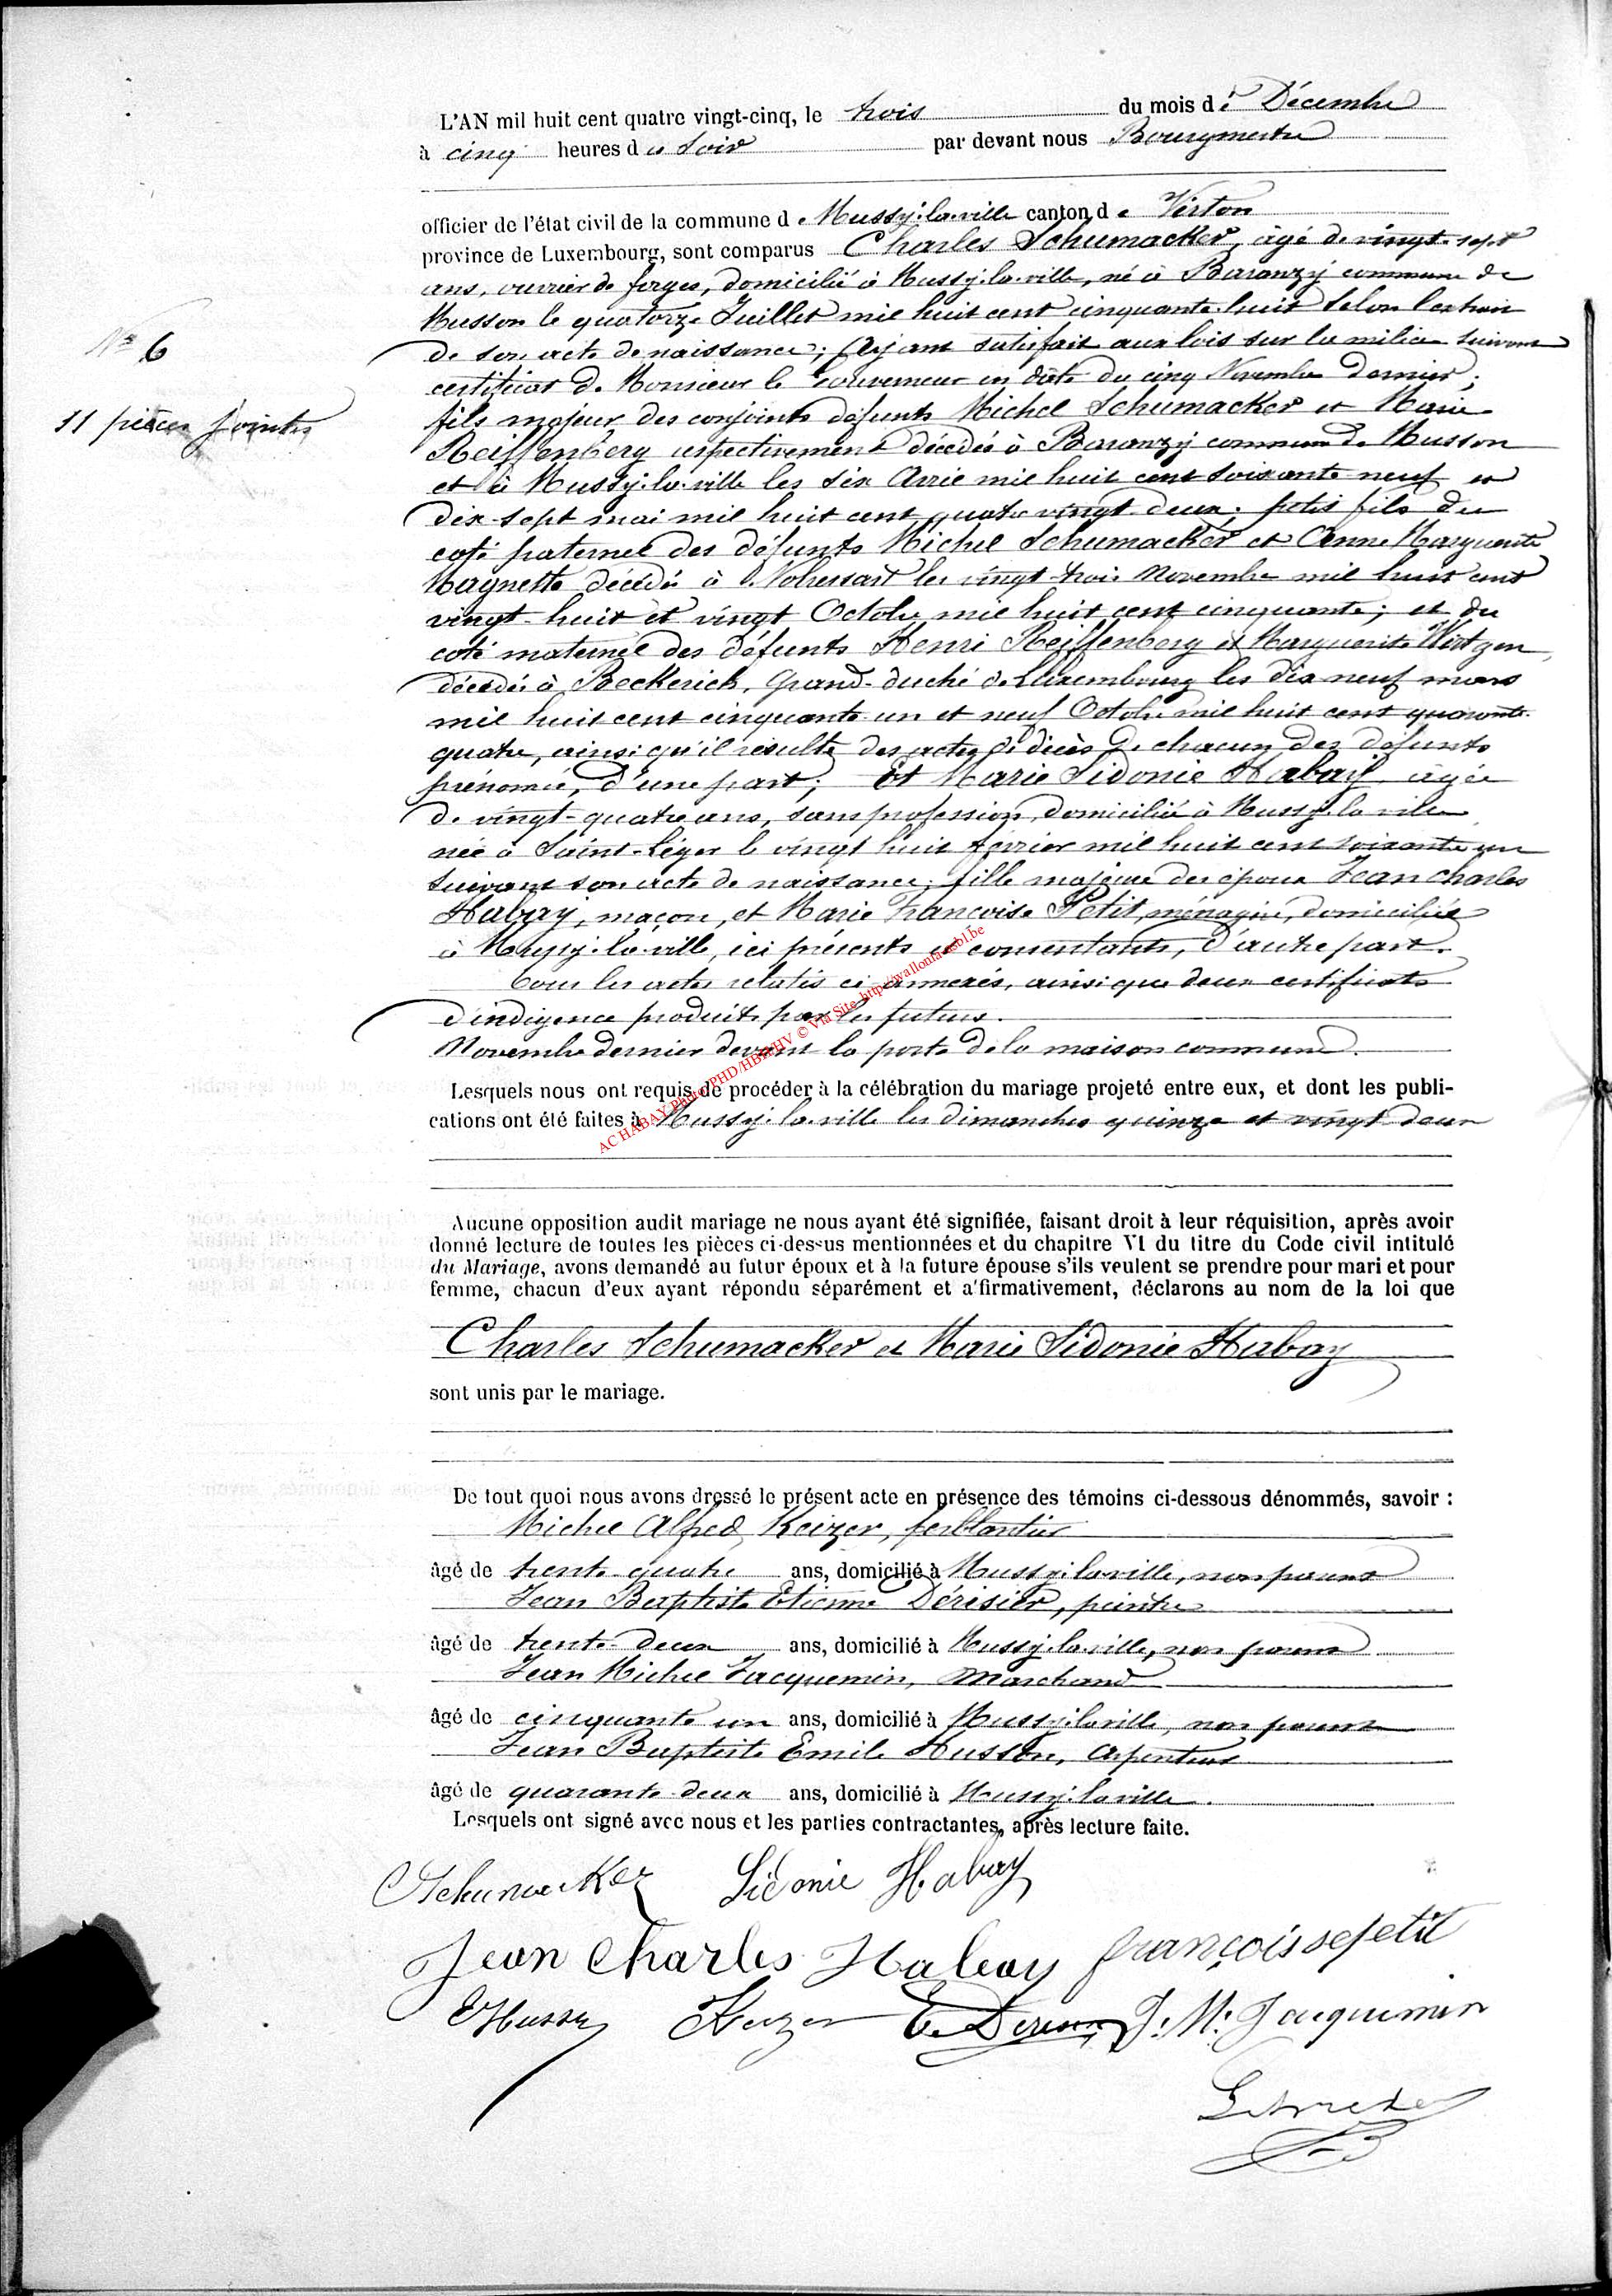 L'AN mil huit cent quatre vingt-cinq, le trois du mois de Décembre
à cinq heures du Soir par devant nous Bourgmestre
officier de l'état civil de la commune de Mussy-la-ville canton de Virton
province de Luxembourg, sont comparus Charles Schumacker, âgé de vingt-sept
ans, ouvrier de forges, domicilié à Mussy-la-ville, né à Baranzy commune de
Musson le quatorze Juillet mil huit cent cinquante-huit selon l'extrait
de son acte de naissance; Ayant satisfait aux lois sur la milice suivant
N° 6
certificat de Monsieur le Gouverneur en date du cinq Novembre dernier;
11 pièces jointes
fils majeur des conjoints défunts Michel Schumacker et Marie
Reiffenberg respectivement décédés à Baranzy commune de Musson
et à Mussy-la-ville les six Avril mil huit cent soixante neuf et
dix-sept mai mil huit cent quatre vingt-deux; petit fils du
coté paternel des défunts Michel Schumacker et Anne Marguerite
Magnette décédés à Nobressart les vingt-trois Novembre mil huit cent
vingt-huit et vingt Octobre mil huit cent cinquante; et du
coté maternel des défunts Henri Reiffenberg et Marguerite
décédés à Beckerich, Grand-duché de Luxembourg les dix neuf mars
mil huit cent cinquante-un et neuf Octobre mil huit cent quarante-
quatre, ainsi qu'il résulte des actes de décès de chacun des défunts
prénomés, d'une part; Et Marie Sidonie Habay, âgée
de vingt-quatre ans, sans profession, domiciliée à Mussy-la-ville
née à Saint-Léger le vingt huit février mil huit cent soixante un
suivant son acte de naissance; fille majeure des époux Jean Charles
Habay, maçon, et Marie Françoise Petit, ménagère, domiciliés
à Mussy-la-ville, ici présents et consentants, d'autre part.
Tous les actes relatés ci-annexés, ainsi que deux certificats
d'indigence produits par les futurs.
Novembre dernier devant la porte de la maison commune.
Lesquels nous ont requis de procéder à la célébration du mariage projeté entre eux, et dont les publi-
cations ont été faites à Mussy-la-ville les dimanches quinze et vingt deux
AC HABAY Photo PHD/HBH/HV © Via Site http://wallonia-asbl.be
Aucune opposition audit mariage ne nous ayant été signifiée, faisant droit à leur réquisition, après avoir
donné lecture de toutes les pièces ci-dessus mentionnées et du chapitre VI du titre du Code civil intitulé
du Mariage, avons demandé au futur époux et à la future épouse s'ils veulent se prendre pour mari et pour
femme, chacun d'eux ayant répondu séparément et affirmativement, déclarons au nom de la loi que
Charles Schumacker et Marie Sidonie Habay
sont unis par le mariage.
De tout quoi nous avons dressé le présent acte en présence des témoins ci-dessous dénommés, savoir :
Michel Alfred Keizer, ferblantier
âgé de trente-quatre ans, domicilié à Mussy-la-ville, non parent
Jean Baptiste Etienne Dérisier, peintre
âgé de trente-deux ans, domicilié à Mussy-la-ville, non parent
Jean Michel Jacquemin, Marchand
âgé de cinquante un ans, domicilié à Mussy-la-ville, non parent
Jean Baptiste Emile Husson, Arpenteur
âgé de quarante-deux ans, domicilié à Mussy-la-ville.
Lesquels ont signé avec nous et les parties contractantes, après lecture faite.
Schumacker Sidonie Habay
Jean Charles Habay françoise petit
EHusson Keizer E. Derisier J. M. Jacquemin